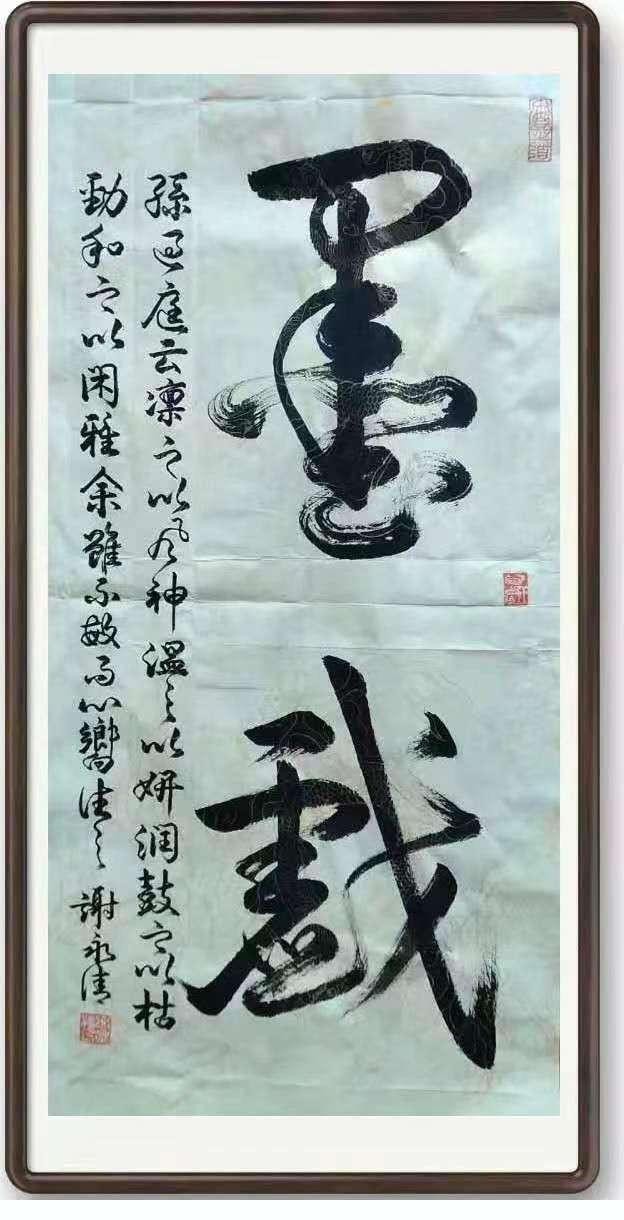 墨戲
孫過庭云凛之以風神温之以妍潤鼓之以枯
勁和之以閑雅余雖不敏而心嚮往之 謝永清